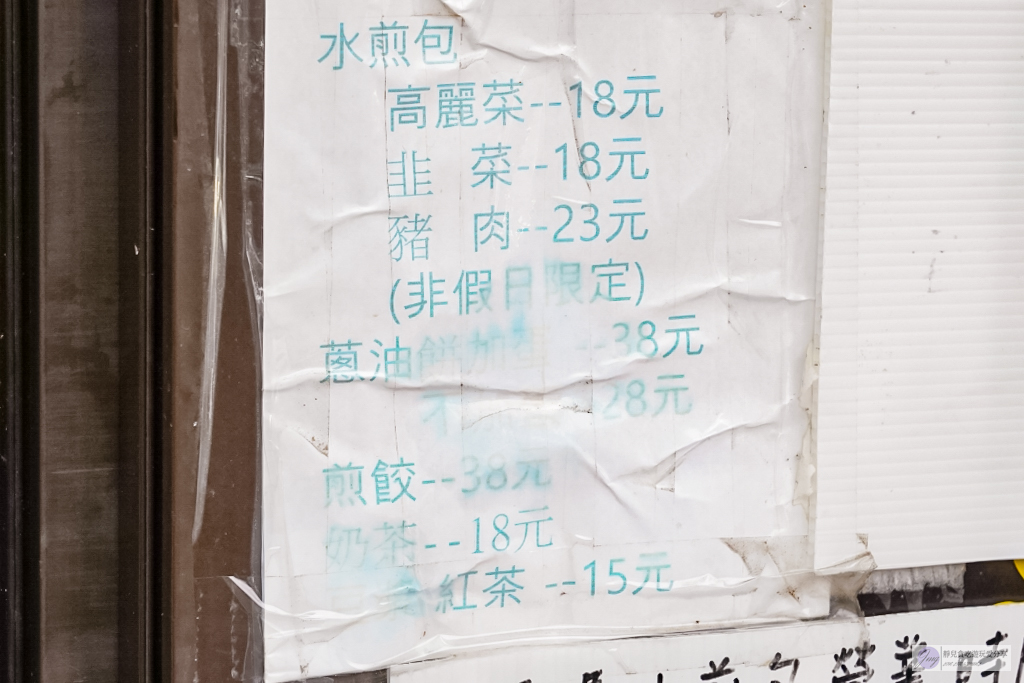 水煎包
高麗菜--18元
韭 菜--18元
豬 肉--23元
(非假日限定)
蔥油餅加 --38元
不 28元
煎餃--38元
奶茶--18元
紅茶 --15元